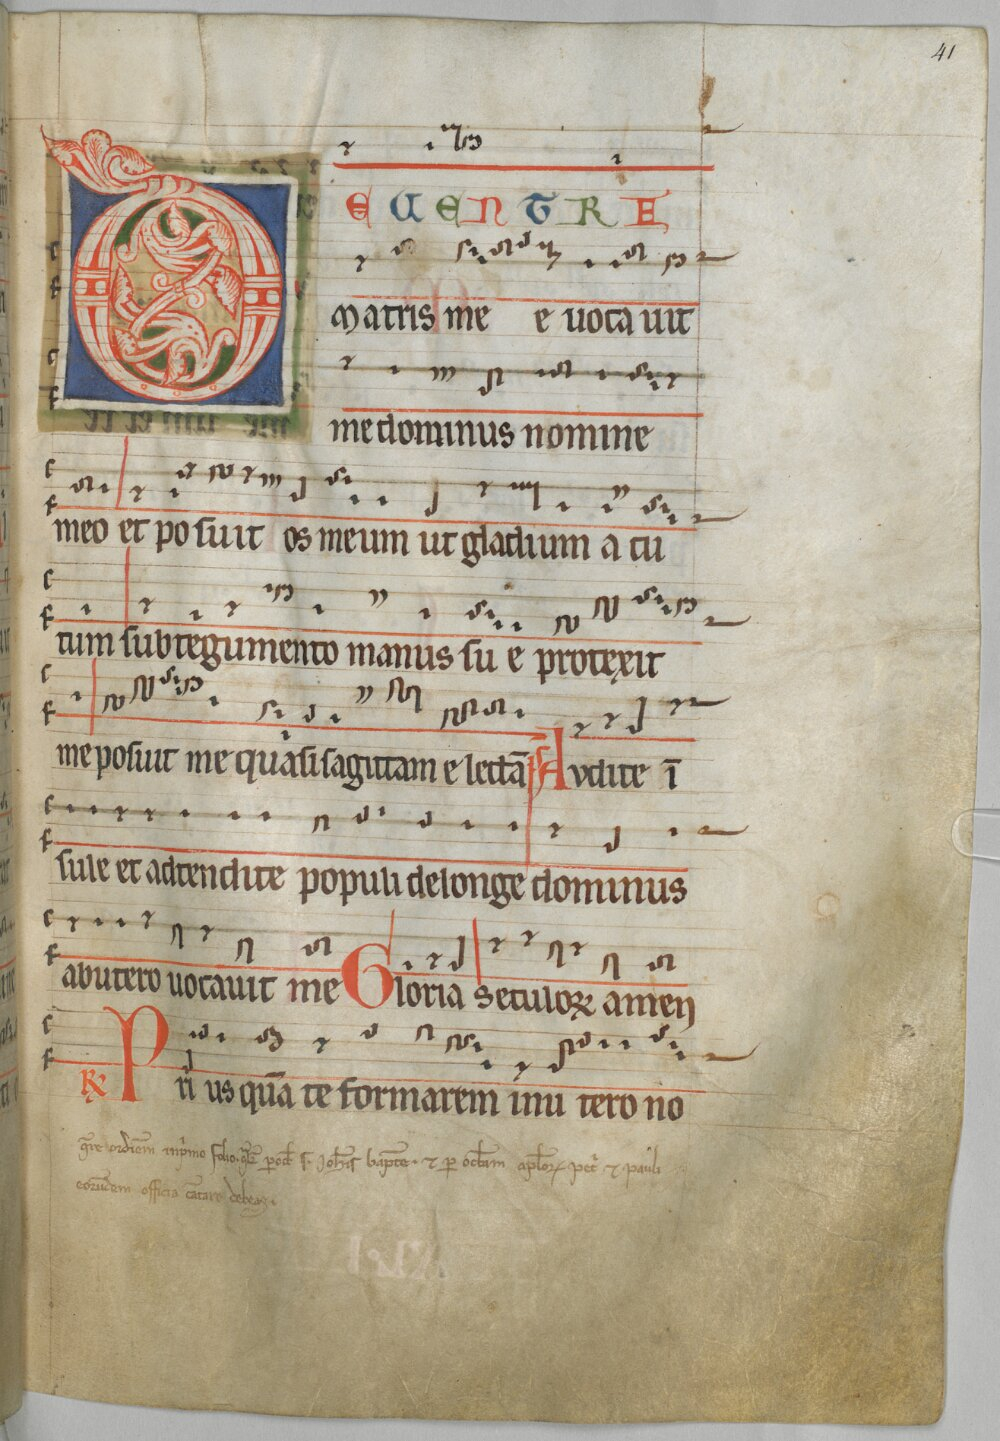 41
DE UENTRE
matris me e uoca uit
me dominus nomine
meo et po suit os meum ut gladium a cu
tum sub tegumento manus su e protexit
me posuit me quasi sagittam e lectā Ps Audite ī
sule et adtendite populi de longe dominus
ab utero uocauit me Gloria seculoꝝ amen
℟ Pri us quā te formarem in u tero no
ordinem folio Ioh̄is bapt̄e ⁊ ap̄loꝝ pet̄ ⁊ pauli
eorūdem officia cātare